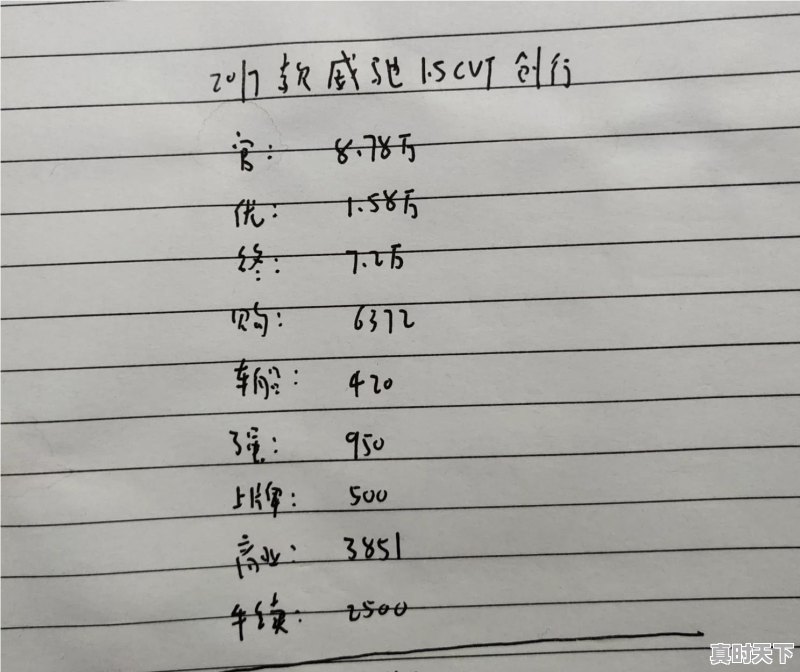 2017款威驰1.5CVT创行
官: 8.78万
优: 1.58万
终: 7.2万
购: 6372
车船: 420
强: 950
上牌: 500
商业: 3851
续: 2500
真时天下